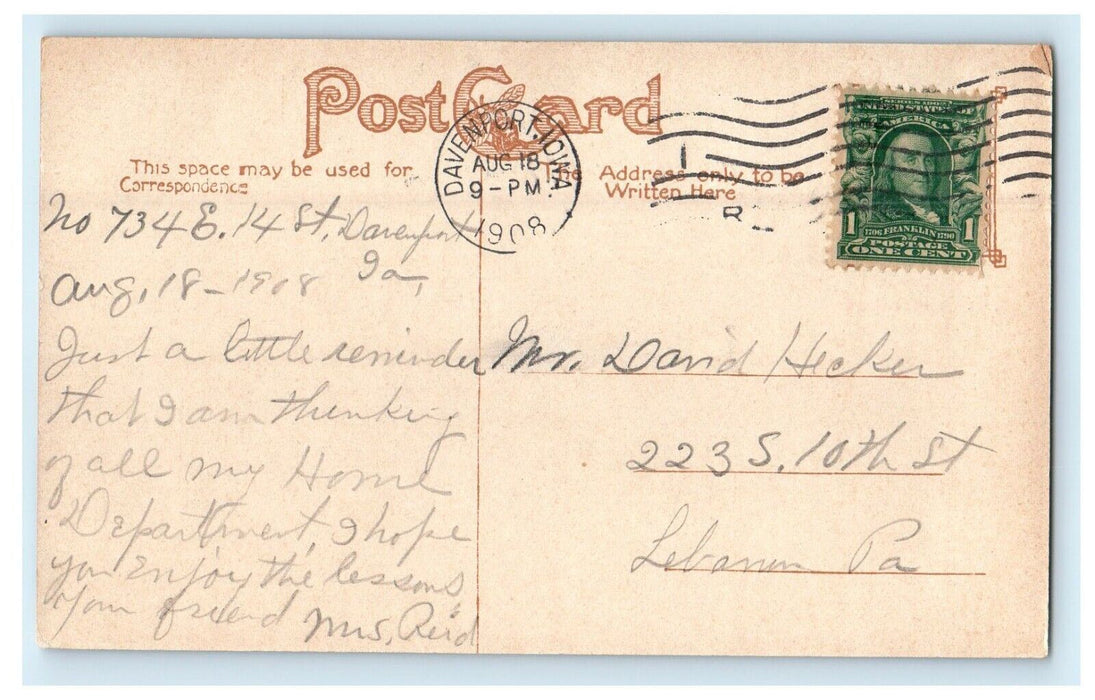 Post Card
This space may be used for
Correspondence
The Address only to be
Written Here
DAVENPORT, IOWA.
AUG 18
9-PM
1908
R
SERIES 1902
UNITED STATES OF
AMERICA
1706 FRANKLIN 1790
1 1
POSTAGE
ONE CENT
No 734 E. 14 St, Davenport
Ia,
Aug, 18-1908
Just a little reminder
that I am thinking
of all my Home
Department, I hope
you Enjoy the lessons
Your friend Mrs, Reid
Mr. David Hecker
223 S, 10th St
Lebanon Pa